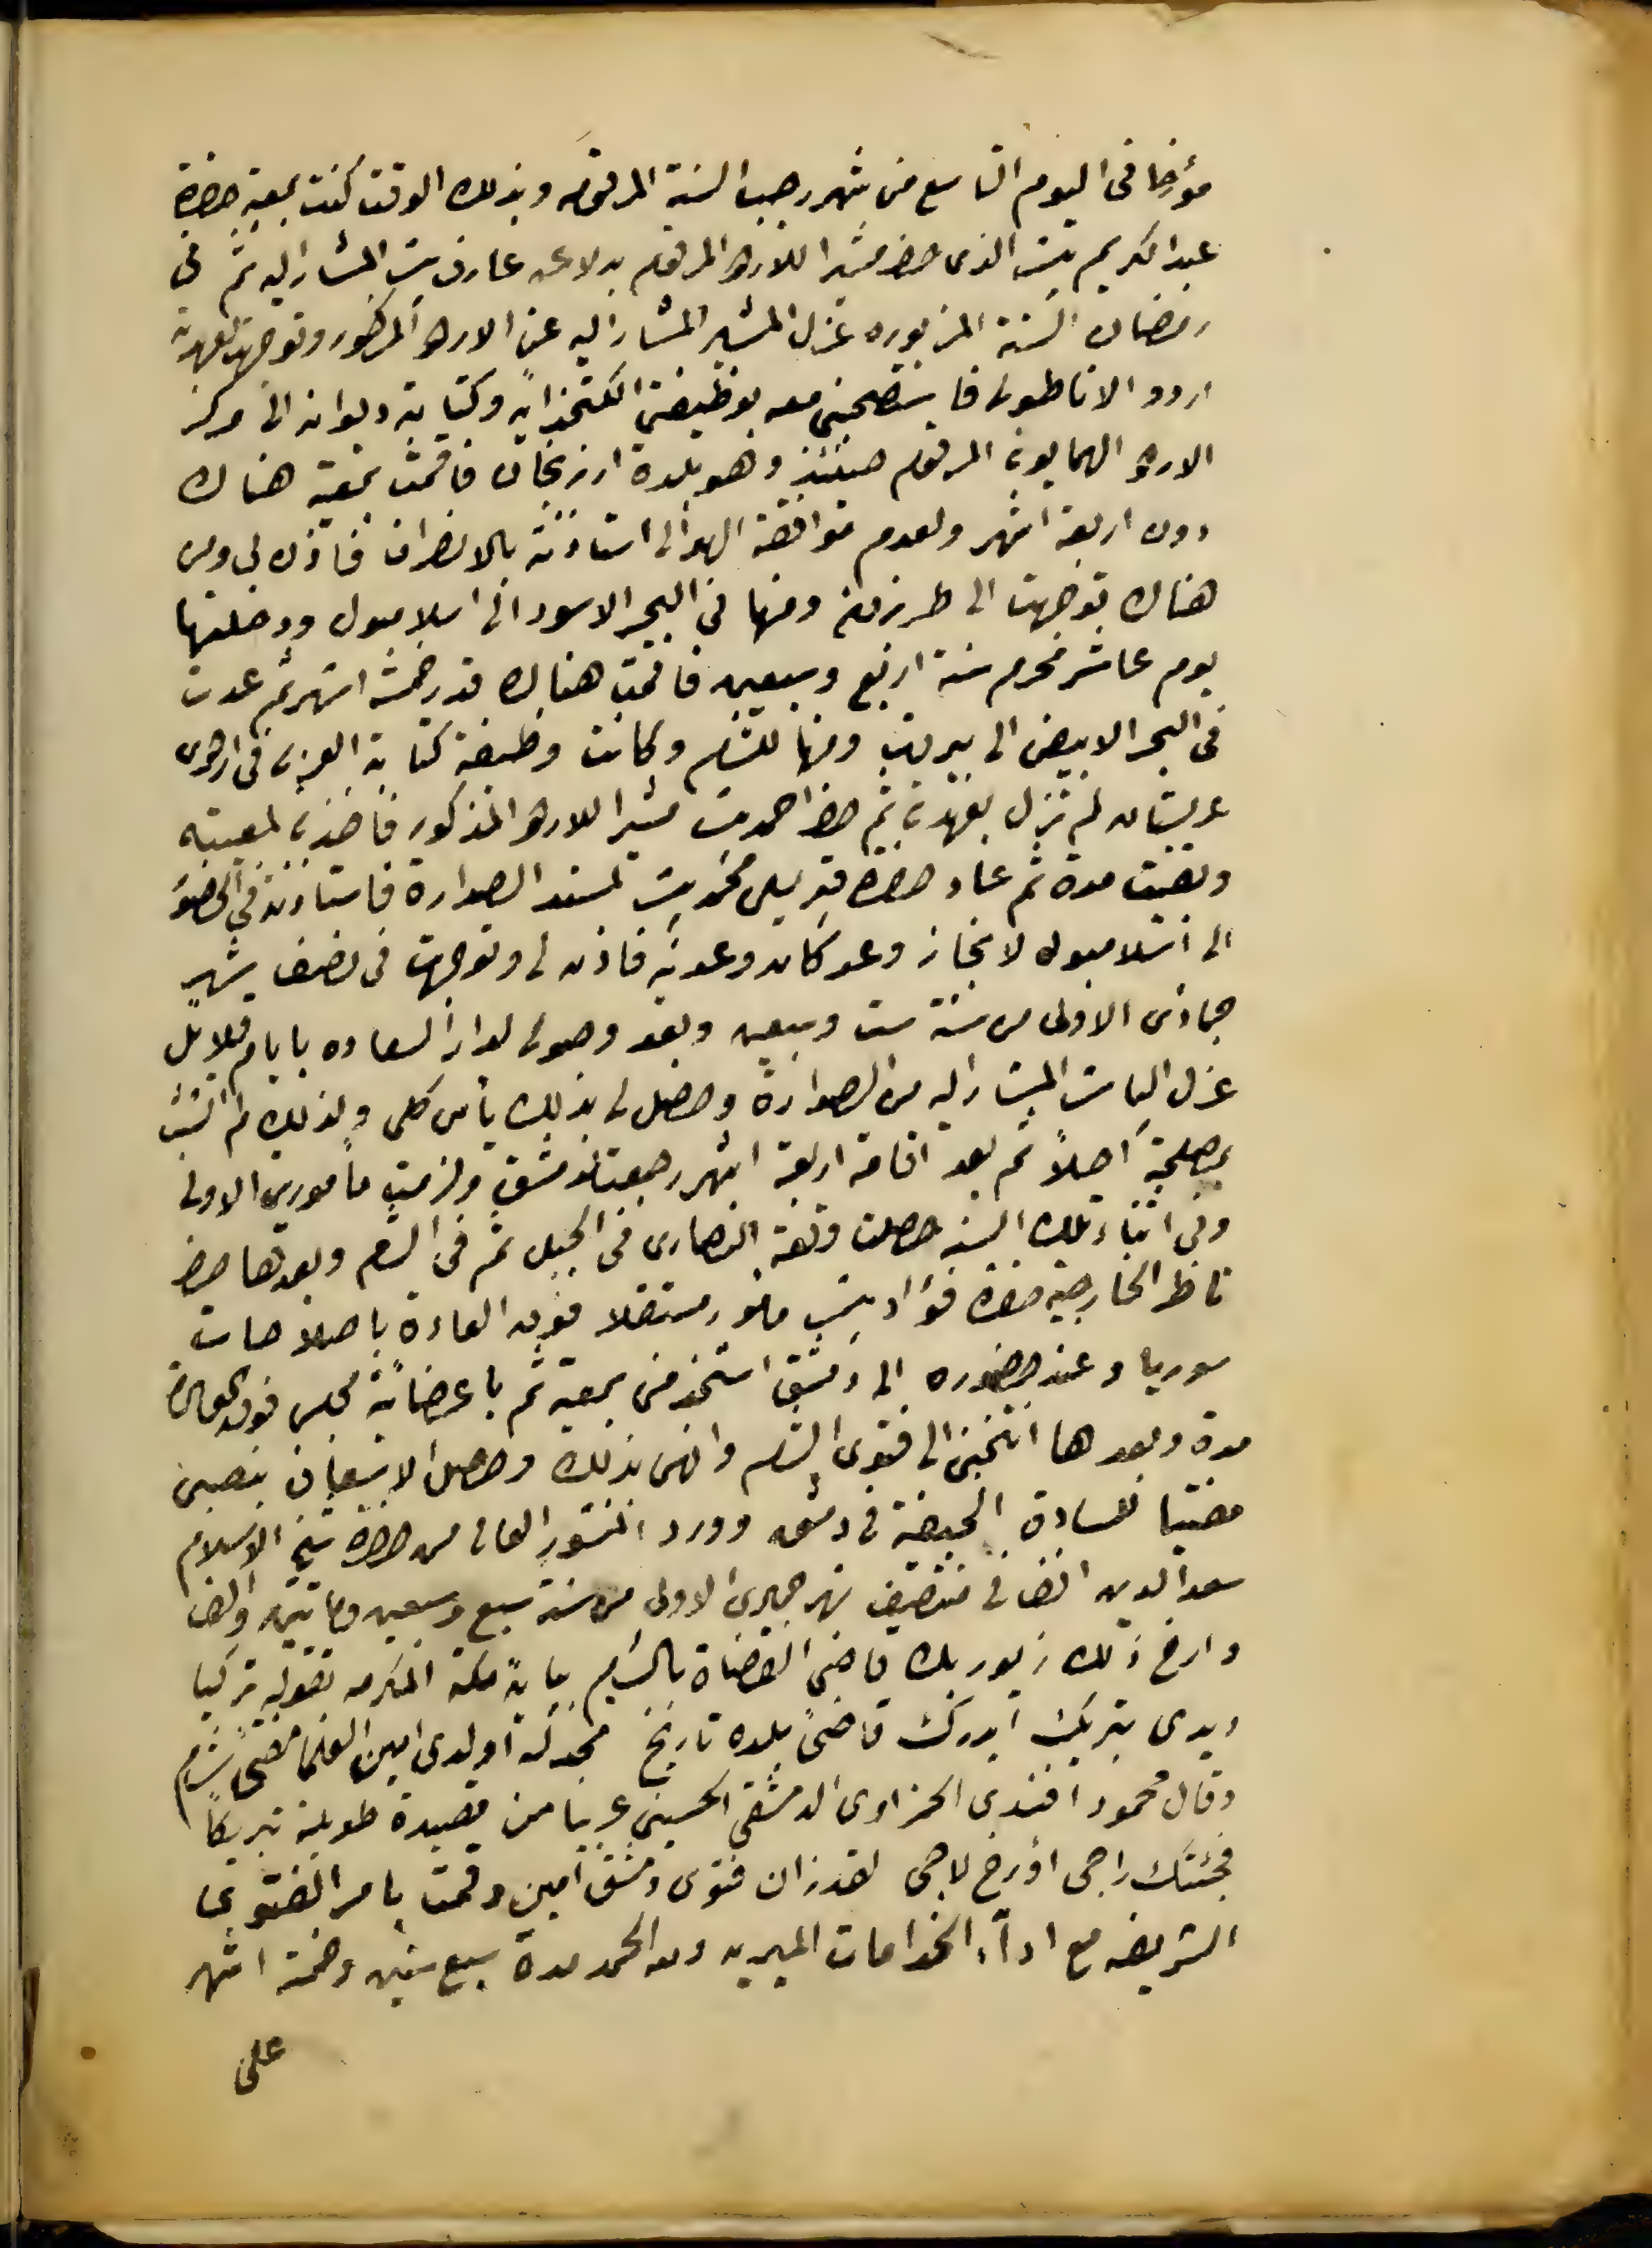 مؤرخا فى اليوم التاسع من شهر رجب السنة المرقومه وبذلك الوقت كنت بمعية حضرة
عبد الكريم باشا الذى حضر مشيرا للاردو المرقوم بدلا عن عارف باشا المشار اليه ثم فى
رمضان السنة المزبوره عزل المشير المشار اليه عن الاردو المذكور وتوجهت لعهدته
اردو الاناطولى فاستصحبنى معه بوظيفتى الكتخدائيه وكتابة ديوانه الى مركز
الاردو الهمايونى المرقوم حينئذ وهو بلدة ارزنجان فاقمت بمعيته هناك
دون اربعة اشهر ولعدم موافقة الهوا لى استاذنته بالانصراف فاذن لى ومن
هناك توجهت الى طربزون ومنها فى البحر الاسود الى اسلامبول ودخلتها
يوم عاشر محرم سنة اربع وسبعين فاقمت هناك قدر خمسة اشهر ثم عدت
فى البحر الابيض الى بيروت ومنها للشام وكانت وظيفة كتابة العربى فى اردوى
عربستان لم تزل بعهدتى ثم حضر احمد باشا مشيرا للاردو المذكور فاخذنى لمعيته
وبقيت مدة ثم عاد حضرة قبرسلى محمد باشا لمسند الصدارة فاستاذنته فى الحضور
الى استلامبول لانجاز وعد كان وعدنيه فاذن لى وتوجهت فى نصف شهر
جمادى الاولى من سنة ست وسبعين وبعد وصولى لدار السعاده بايام قلايل
عزل الباشا المشار اليه من الصدارة وحصل لى بذلك يأس كلى ولذلك لم اتشبث
بمصلحة اصلاً ثم بعد اقامة اربعة اشهر رجعت لدمشق ولزمت مأموريتى الاولى
وفى اثناء تلك السنه حصلت وقعة النصارى فى الجبل ثم فى الشام وبعدها حضر
ناظر الخارجيه حضرة فؤاد باشا مأمور مستقلا فوق العادة باصلاحات
سوريا وعند حضوره الى دمشق استخدمنى بمعيته ثم باعضائية مجلس فوق العاده
مدة وبعدها انتخبنى الى فتوى الشام وانهى بذلك وحصل الاسعاف بنصبى
مفتيا للسادة الحنفية فى دمشق وورد المنشور العالى من حضرة شيخ الاسلام
سعد الدين افندى فى منتصف شهر جمادى الاولى من سنة سبع وسبعين ومائتين والف
وارخ ذلك زيور بك قاضى القضاة بالشام بپاية مكة المكرمه بقوله تركيا
ديدى تبريك ايدرك قاضئ بلده تاريخ مجدله اولدى امين العلما مفتئ شام
وقال محمود افندى الحمزاوى الدمشقى الحسينى عربيا من قصيدة طويلة تبريكاً
فجئتك راجى اؤرخ لاجى لقد زان فتوى دمشق امين وقمت بامر الفتوى
الشريفه مع اداء الخدامات الميريه ولله الحمد مدة سبع سنين وخمسة اشهر
على